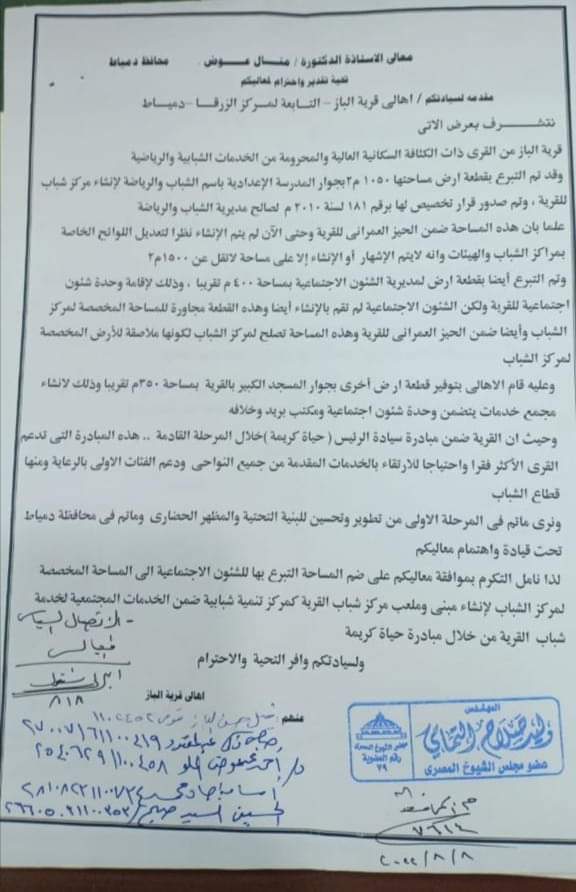 معالى الاستاذة الدكتورة / منال عوض محافظ دمياط
تحية تقدير واحترام لمعاليكم
مقدمه لسيادتكم / اهالى قرية الباز - التابعة لمركز الزرقا - دمياط
نتشرف بعرض الاتى
قرية الباز من القرى ذات الكثافة السكانية العالية والمحرومة من الخدمات الشبابية والرياضية
وقد تم التبرع بقطعة ارض مساحتها ١٠٥٠ م٢ بجوار المدرسة الإعدادية باسم الشباب والرياضة لإنشاء مركز شباب
للقرية ، وتم صدور قرار تخصيص لها برقم ١٨١ لسنة ٢٠١٠ م لصالح مديرية الشباب والرياضة
علما بان هذه المساحة ضمن الحيز العمرانى للقرية وحتى الآن لم يتم الإنشاء نظرا لتعديل اللوائح الخاصة
بمراكز الشباب والهيئات وانه لايتم الإشهار أو الإنشاء إلا على مساحة لاتقل عن ١٥٠٠م٢
وتم التبرع أيضا بقطعة ارض لمديرية الشئون الاجتماعية بمساحة ٤٠٠ م تقريبا ، وذلك لإقامة وحدة شئون
اجتماعية للقرية ولكن الشئون الاجتماعية لم تقم بالإنشاء أيضا وهذه القطعة مجاورة للمساحة المخصصة لمركز
الشباب وأيضا ضمن الحيز العمرانى للقرية وهذه المساحة تصلح لمركز الشباب لكونها ملاصقة للأرض المخصصة
لمركز الشباب
وعليه قام الاهالى بتوفير قطعة ارض أخرى بجوار المسجد الكبير بالقرية بمساحة ٣٥٠م تقريبا وذلك لانشاء
مجمع خدمات يتضمن وحدة شئون اجتماعية ومكتب بريد وخلافه
وحيث ان القرية ضمن مبادرة سيادة الرئيس ( حياة كريمة ) خلال المرحلة القادمة .. هذه المبادرة التى تدعم
القرى الأكثر فقرا واحتياجا للارتقاء بالخدمات المقدمة من جميع النواحى ودعم الفئات الاولى بالرعاية ومنها
قطاع الشباب
ونرى ماتم فى المرحلة الاولى من تطوير وتحسين للبنية التحتية والمظهر الحضارى وماتم فى محافظة دمياط
تحت قيادة واهتمام معاليكم
لذا نامل التكرم بموافقة معاليكم على ضم المساحة التبرع بها للشئون الاجتماعية الى المساحة المخصصة
لمركز الشباب لإنشاء مبنى وملعب مركز شباب القرية كمركز تنمية شبابية ضمن الخدمات المجتمعية لخدمة
شباب القرية من خلال مبادرة حياة كريمة
ولسيادتكم وافر التحية والاحترام
- الاتصال السياسى
٨١٨
اهالى قرية الباز
عنهم
المهندس
وليد صلاح التمامي
عضو مجلس الشيوخ المصرى
رقم العضوية
٢٩
٧٦١٤
٢٠٢٢/٨/٨